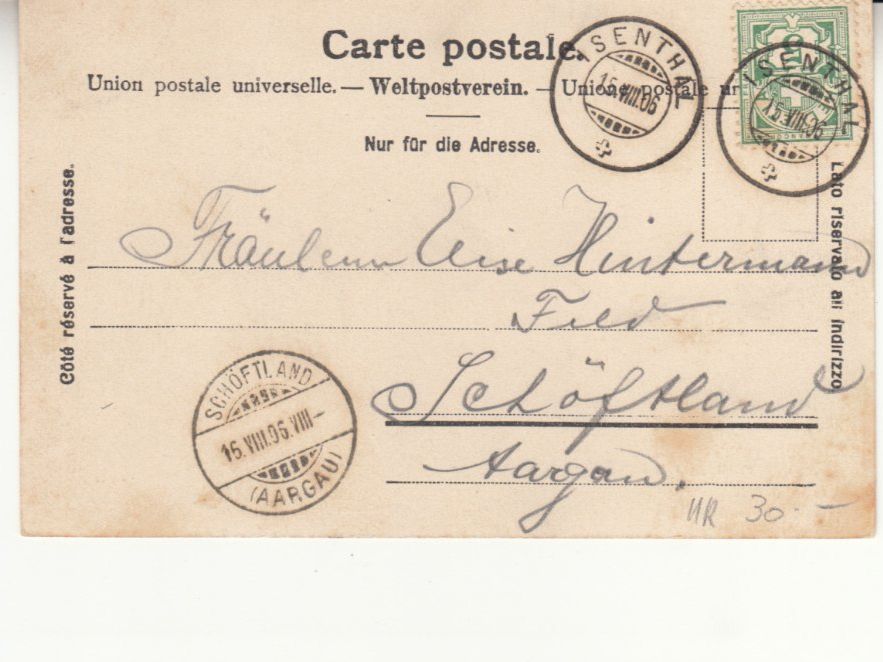 Carte postale.
Union postale universelle. — Weltpostverein. — Unione postale un
Nur für die Adresse.
ISENTHAL
15.VIII.06
ISENTHAL
15.VIII.06
5
Côté réservé à l'adresse.
Lato riservato all' indirizzo
Fräulein Elise Hintermann
Feld
Schöftland
Aargau.
SCHÖFTLAND
16.VIII.06.VIII–
(AARGAU)
UR 30.–